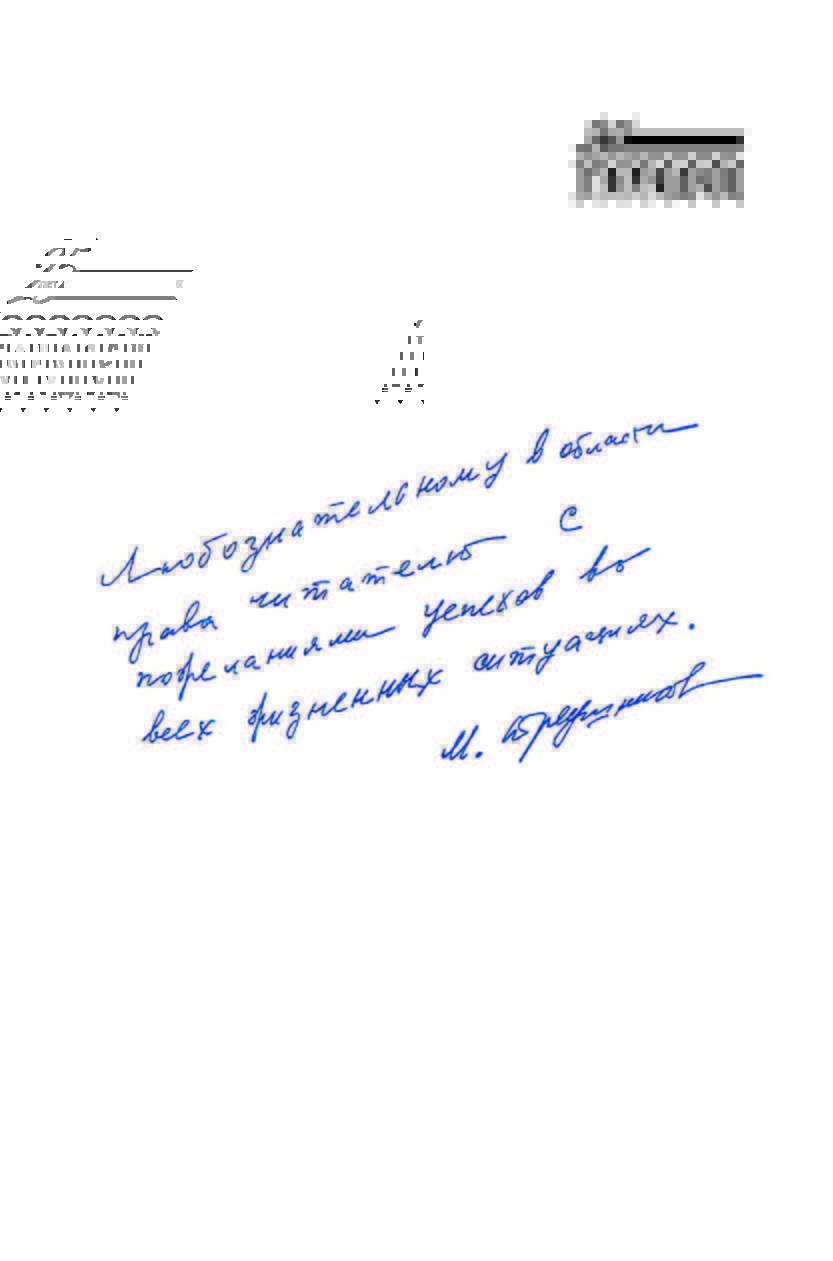 Любознательному в области
права читателю с
пожеланиями успехов во
всех жизненных ситуациях.
М.